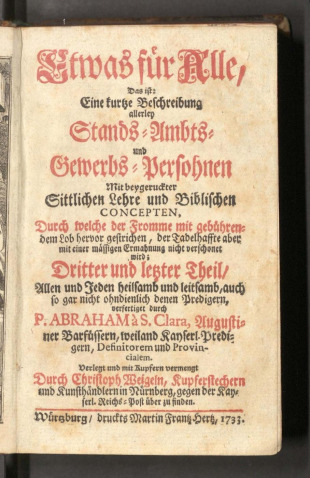 Etwas für Alle,
Das ist:
Eine kurtze Beschreibung
allerley
Stands-Ambts-
und
Gewerbs-Persohnen
Mit beygeruckter
Sittlichen Lehre und Biblischen
CONCEPTEN,
Durch welche der Fromme mit gebühren-
dem Lob hervor gestrichen, der Tadelhaffte aber
mit einer mässigen Ermahnung nicht verschonet
wird;
Dritter und letzter Theil/
Allen und Jeden heilsamb und leitsamb, auch
so gar nicht ohndienlich denen Predigern,
verfertiget durch
P. ABRAHAM à S. Clara, Augusti-
ner Barfüssern, weiland Kayserl. Predi-
gern, Definitorem und Provin-
cialem.
Verlegt und mit Kupfern vermengt
Durch Christoph Weigeln, Kupferstechern
und Kunsthändlern in Nürnberg, gegen der Kay-
serl. Reichs-Post über zu finden.
Würtzburg/ druckts Martin Frantz Hertz, 1733.